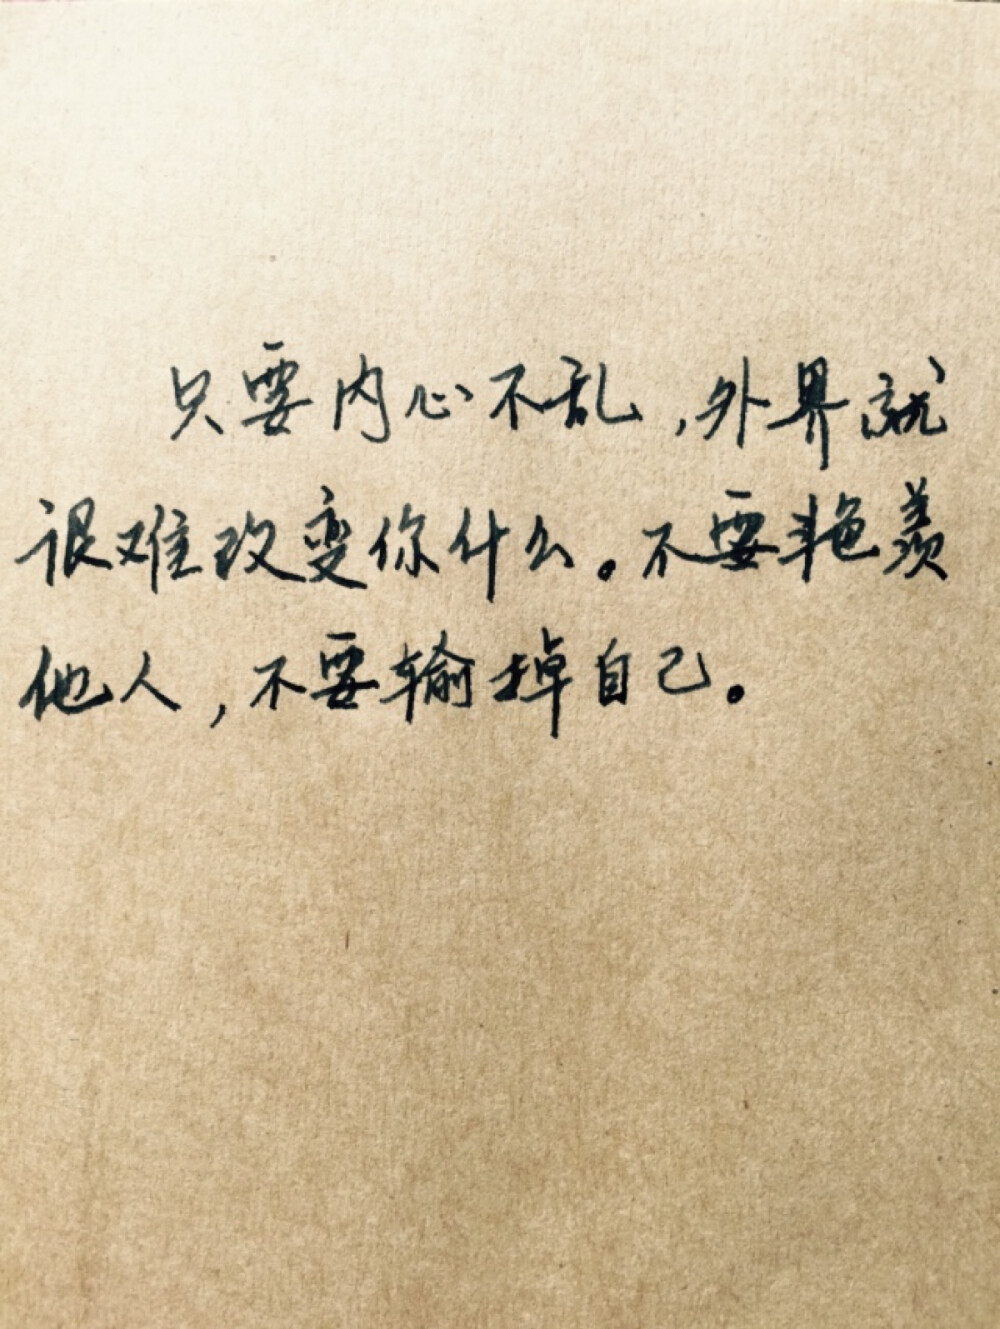 只要内心不乱，外界就
很难改变你什么。不要艳羡
他人，不要输掉自己。